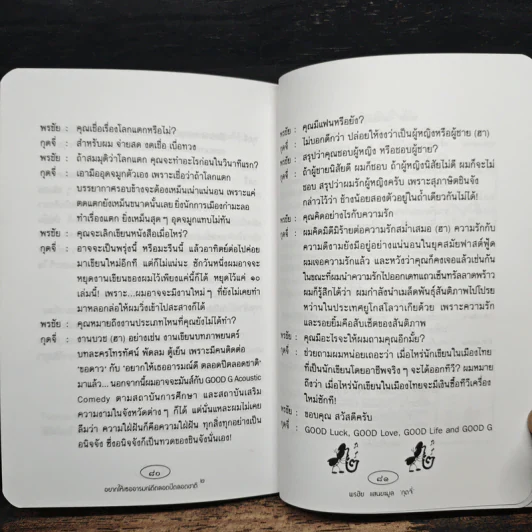 พรชัย : คุณเชื่อเรื่องโลกแตกหรือไม่?
กุดจี่ : สำหรับผม จ่ายสด งดเชื่อ เบื่อทวง
พรชัย : ถ้าสมมุติว่าโลกแตก คุณจะทำอะไรก่อนในวินาทีแรก?
กุดจี่ : เอามืออุดจมูกตัวเอง เพราะเชื่อว่าถ้าโลกแตก
บรรยากาศรอบข้างจะต้องเหม็นเน่าแน่นอน เพราะแค่
ตดแตกยังเหม็นขนาดนั้นเลย ยิ่งนักการเมืองกำมะลอ
ทำเรื่องแตก ยิ่งเหม็นสุด ๆ อุดจมูกแทบไม่ทัน
พรชัย : คุณจะเลิกเขียนหนังสือเมื่อไหร่?
กุดจี่ : อาจจะเป็นพรุ่งนี้ หรือมะรืนนี้ แล้วอาทิตย์ต่อไปค่อย
มาเขียนใหม่อีกที แต่ก็ไม่แน่นะ ซักวันหนึ่งผมอาจจะ
หยุดงานเขียนของผมไว้เพียงแค่นี้ก็ได้ หยุดไว้แค่ ๑๐
เล่มนี้! เพราะ...ผมอาจจะมีงานใหม่ ๆ ที่ยังไม่เคยทำ
มาหลอกล่อให้ผมวิ่งเข้าไปสะสางก็ได้
พรชัย : คุณหมายถึงงานประเภทไหนที่คุณยังไม่ได้ทำ?
กุดจี่ : งานบวช (ฮา) อย่างเช่น งานเขียนบทภาพยนตร์
บทละครโทรทัศน์ พัดลม ตู้เย็น เพราะมีคนติดต่อ
'ขอดาว' กับ 'อยากให้เธออารมณ์ดี ตลอดปีตลอดชาติ'
มาแล้ว... นอกจากนี้ผมอาจจะมันส์กับ GOOD G Acoustic
Comedy ตามสถาบันการศึกษา และสถาบันเสริม
ความงามในจังหวัดต่าง ๆ ก็ได้ แต่นั่นแหละผมไม่เคย
ลืมว่า ความใฝ่ฝันก็คือความใฝ่ฝัน ทุกสิ่งทุกอย่างเป็น
อนิจจัง ซึ่งอนิจจังก็เป็นทวดของชินจังนั่นเอง!
๘๐
อยากให้เธออารมณ์ดีตลอดปีตลอดชาติ
คุณมีแฟนหรือยัง?
กุดจี่ : ไม่บอกดีกว่า ปล่อยให้งงว่าเป็นผู้หญิงหรือผู้ชาย (ฮา)
พรชัย : สรุปว่าคุณชอบผู้หญิง หรือชอบผู้ชาย?
กุดจี่ : ถ้าผู้ชายนิสัยดี ผมก็ชอบ ถ้าผู้หญิงนิสัยไม่ดี ผมก็จะไม่
ชอบ สรุปว่าผมรักผู้หญิงครับ เพราะสุภาษิตชินจัง
กล่าวไว้ว่า ช้างน้อยสองตัวอยู่ในถ้ำเดียวกันไม่ได้!
พรชัย : คุณคิดอย่างไรกับความรัก
กุดจี่ : ผมคิดมิดีมิร้ายต่อความรักสม่ำเสมอ (ฮา) ความรักกับ
ความดีงามยังมีอยู่อย่างแน่นอนในยุคสมัยฟาสต์ฟู้ด
ผมเจอความรักแล้ว และหวังว่าคุณก็คงเจอแล้วเช่นกัน
ในขณะที่ผมนำความรักไปออกเดทแถวเซ็นทรัลลาดพร้าว
ผมก็รู้สึกได้ว่า ผมกำลังนำเมล็ดพันธุ์สันติภาพไปโปรย
หว่านในประเทศยูโกสโลวาเกียด้วย เพราะความรัก
และรอยยิ้มคือสับเซ็ตของสันติภาพ
พรชัย : คุณมีอะไรจะให้ผมถามคุณอีกมั้ย?
กุดจี่ : ช่วยถามผมหน่อยเถอะว่า เมื่อไหร่นักเขียนในเมืองไทย
ที่เป็นนักเขียนโดยอาชีพจริง ๆ จะได้ออกทีวี? ผมหมาย
ถึงว่า เมื่อไหร่นักเขียนในเมืองไทยจะมีเงินซื้อทีวีเครื่อง
ใหม่ซักที!
พรชัย : ขอบคุณ สวัสดีครับ
กุดจี่ : GOOD Luck, GOOD Love, GOOD Life and GOOD G
๘๑
พรชัย แสนยะมูล กุดจี่